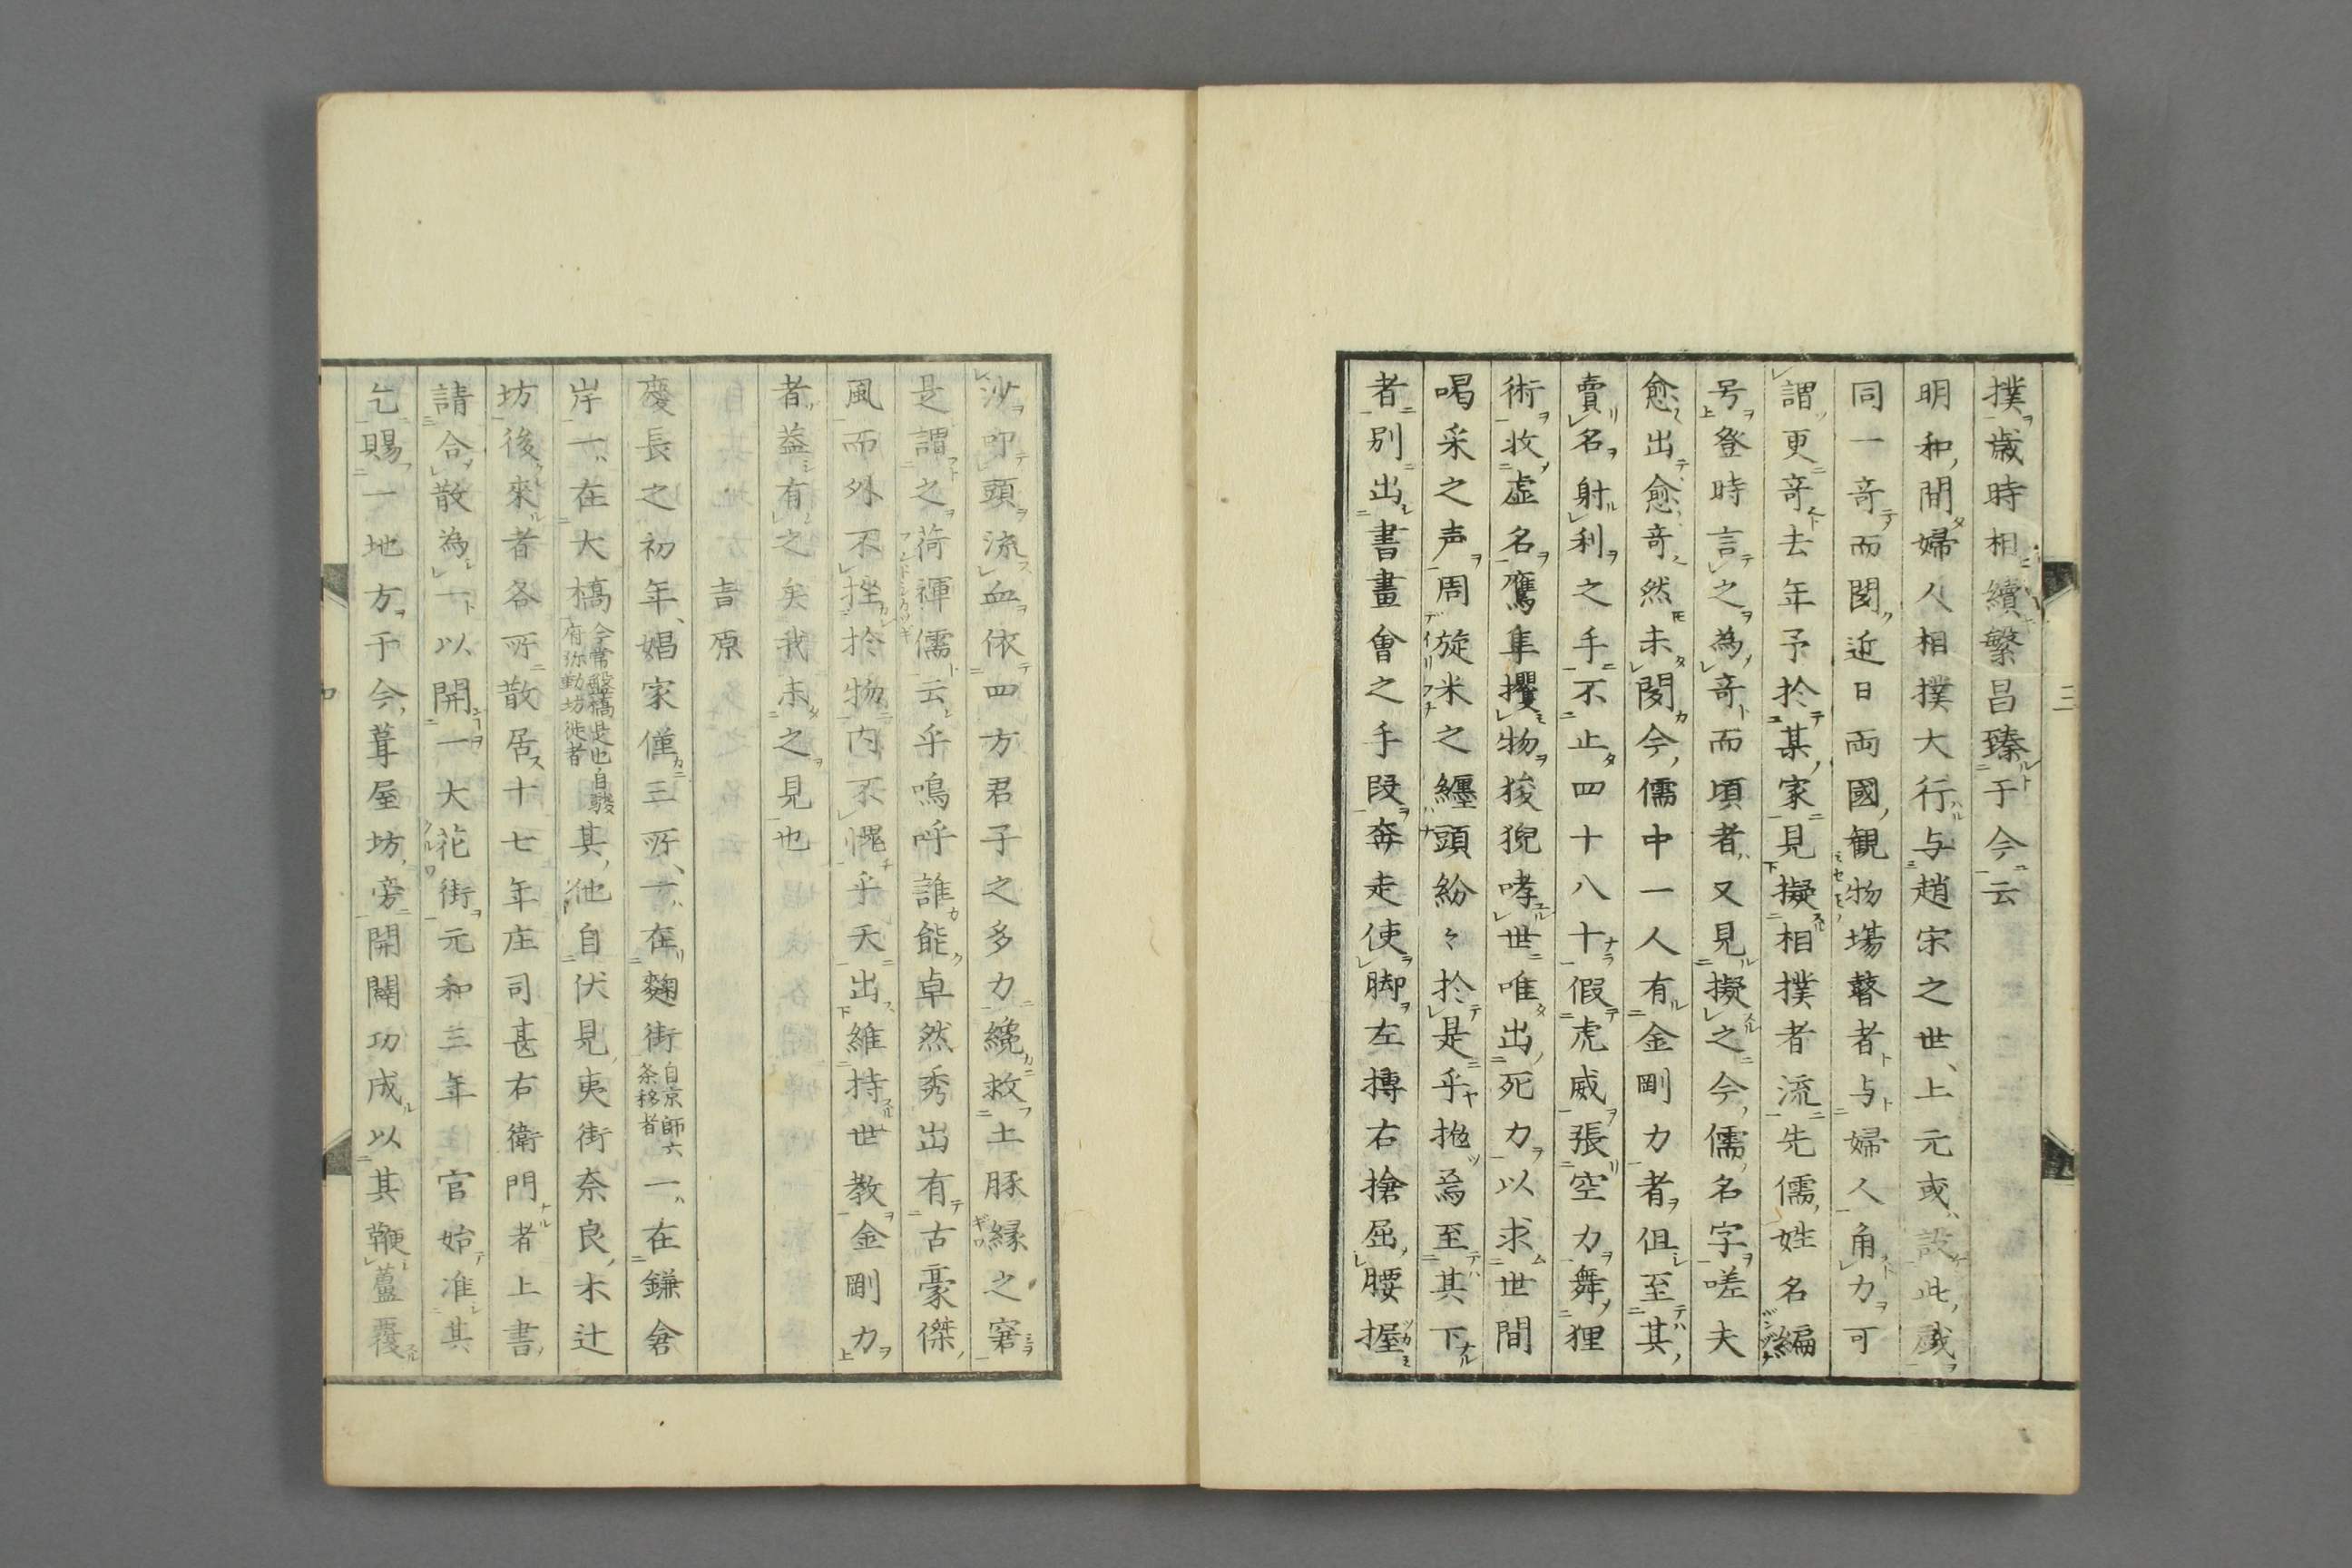 撲歳時相續繁昌臻于今云
明和間婦人相撲大行与趙宋之世上元或設此戯
同一竒而閔近日両國觀物場瞽者与婦人角力可
謂更竒去年予於某家見擬相撲者流先儒姓名編
号登時言之為竒而頃者又見擬之今儒名字嗟夫
愈出愈竒然未閔今儒中一人有金剛力者但至其
賣名射利之手不止四十八十假虎威張空力舞狸
術收虚名鷹隼攫物狻猊哮世唯出死力以求世間
喝采之声周旋米之纏頭紛々於是乎拖焉至其下
者別出書畫會之手段奔走使脚左摶右搶屈腰握
沙叩頭流血依四方君子之多力纔救土豚縁之窘
是謂之荷褌儒云乎鳴呼誰能卓然秀出有古豪傑
風而外不挫於物内不愧乎天出維持世教金剛力
者葢有之矣我未之見也
吉原
慶長之初年娼家僅三所一在麹街自京師六条移者一在鎌倉
岸一在大橋今常盤橋是也自駿府弥勤坊徙者其他自伏見夷街奈良木辻
坊後來者各所散居十七年庄司甚右衛門者上書
請合散為一以開一大花街元和三年官始准其
乞賜一地方于今葺屋坊旁開闢功成以其鞭蘆覆